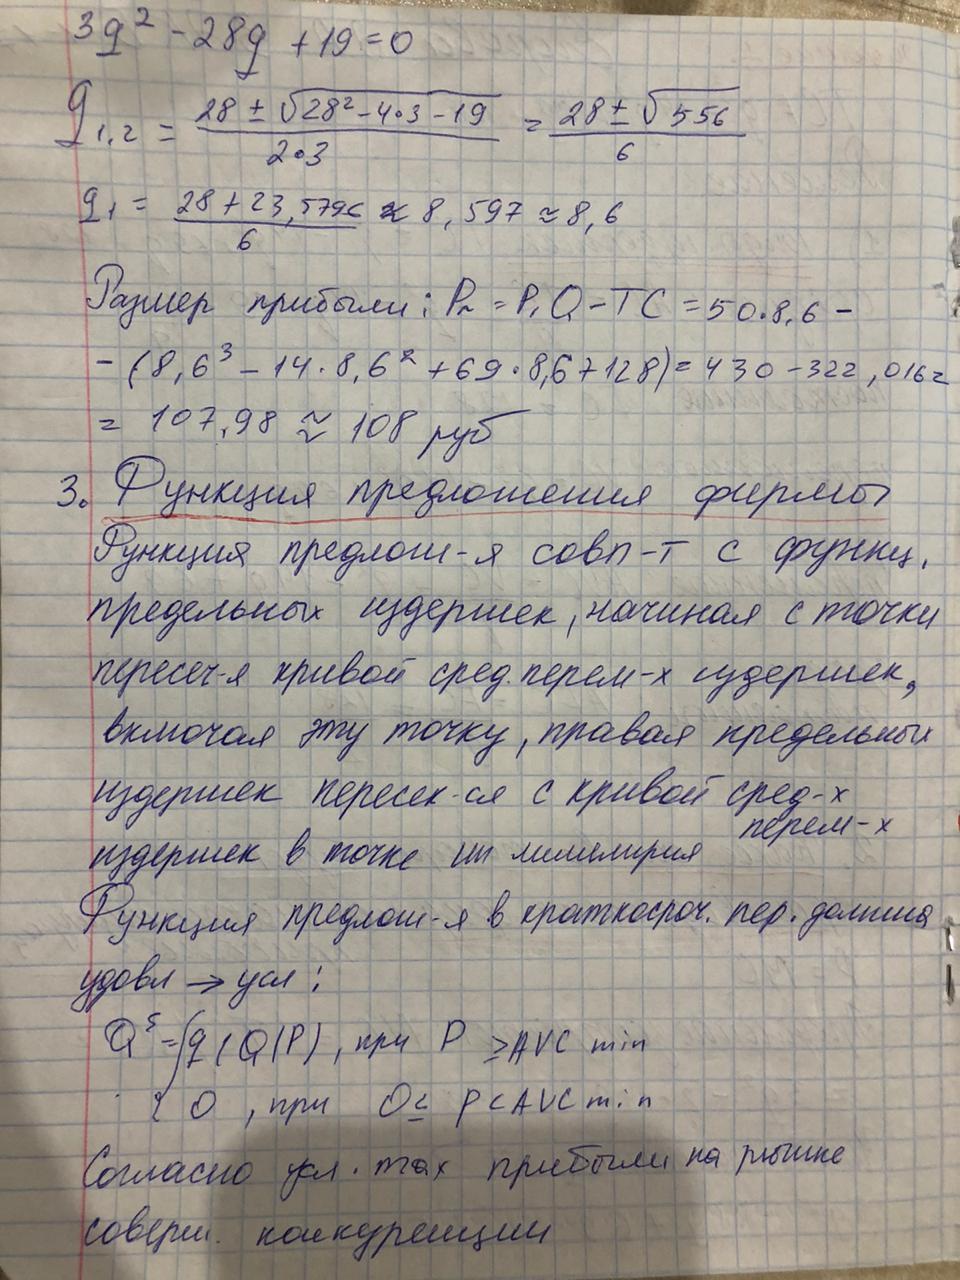 3q² - 28q + 19 = 0
q₁,₂ = (28 ± √(28² - 4·3 - 19)) / (2·3) = (28 ± √556) / 6
q₁ = (28 + 23,5796) / 6 ≈ 8,597 ≈ 8,6
Размер прибыли: Pr = P₁Q - TC = 50·8,6 -
- (8,6³ - 14·8,6² + 69·8,6 + 128) = 430 - 322,016 =
= 107,98 ≈ 108 руб
3. Функция предложения фирмы
Функция предлож-я совп-т с функц.
предельных издержек, начиная с точки
пересеч-я кривой сред. перем-х издержек,
включая эту точку, правая предельных
издержек пересек-ся с кривой сред-х
перем-х
издержек в точке их минимума
Функция предлож-я в краткосроч. пер. должна
удовл → усл:
Qˢ = { q (Q(P), при P ≥ AVC min
{ 0, при 0 ≤ P < AVC min
Согласно усл. max прибыли на рынке
соверш. конкуренции